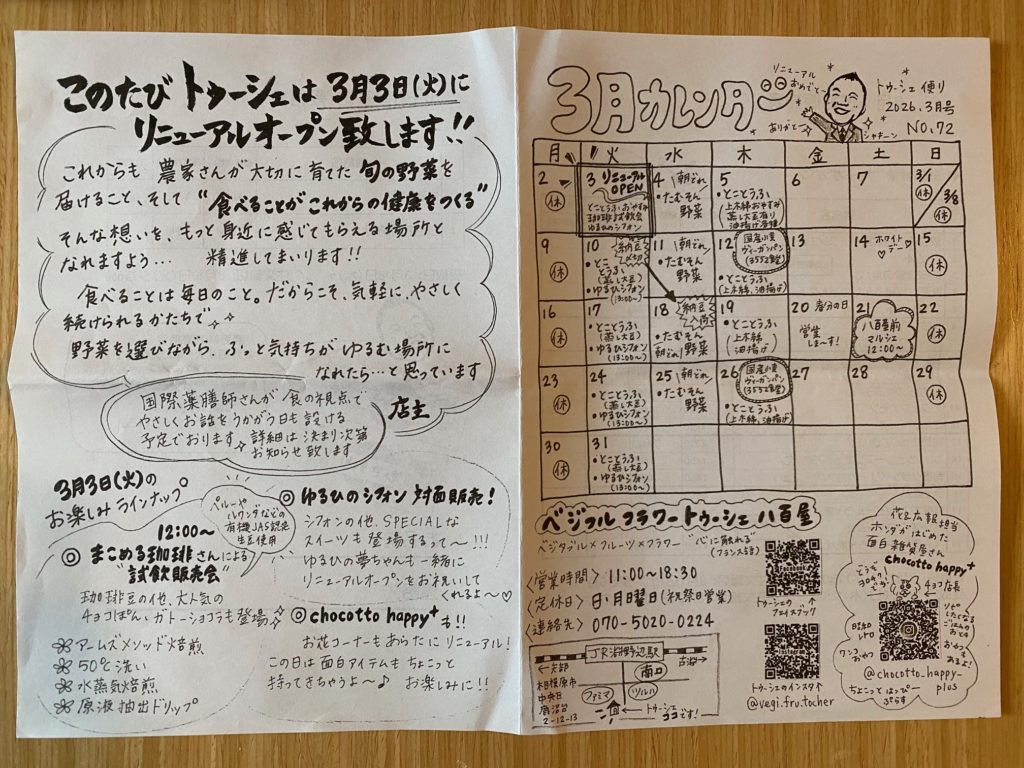 このたび トゥーシェは 3月3日(火)に
リニューアルオープン致します!!
これからも 農家さんが大切に育てた 旬の野菜を
届けること、そして "食べることが これからの健康をつくる"
そんな想いを、もっと身近に感じてもらえる場所と
なれますよう… 精進してまいります!!
食べることは毎日のこと。だからこそ、気軽に、やさしく
続けられるかたちで
野菜を選びながら、ふっと気持ちが ゆるむ場所に
なれたら…と思っています
店主
国際薬膳師さんが 食の視点で
やさしくお話をうかがう日も設ける
予定でおります 詳細は決まり次第
お知らせ致します
3月3日(火)の
お楽しみ ラインナップ
12:00〜
ペルーや
ルワンダなどの
有機JAS認定
生豆使用
◎ まこめる珈琲さんによる
"試飲販売会"
珈琲豆の他、大人気の
チョコぽん、ガトーショコラも登場
アールズメソッド焙煎
50℃洗い
水蒸気焙煎
原液抽出ドリップ
◎ ゆるひのシフォン 対面販売!
シフォンの他、SPECIALな
スイーツも登場するって〜!!!
ゆるひの夢ちゃんも一緒に
リニューアルオープンをお祝いして
くれるよ〜♡
◎ chocotto happy+ も!!
お花コーナーもあらたに リニューアル!
この日は 面白アイテムも ちょこっと
持ってきちゃうよ〜♪ お楽しみに!!
3月カレンダー
リニューアル
おめでとー
ありがとー
シャチーン
トゥーシェ便り
2026.3月号
NO.72
月 火 水 木 金 土 日
2 休
3 リニューアル
OPEN
とことうふおやすみ
珈琲試飲会
ゆるひのシフォン
4 朝どれ
・たむそん
野菜
5
・とことうふ
(上木綿おやすみ
蒸し大豆有り
油揚げ各種)
6
7
3/1 休
3/8 休
9 休
10 納豆〆切
・とことうふ
(蒸し大豆)
・ゆるひシフォン
(13:00〜)
11 朝どれ
・たむそん
野菜
12 国産小麦
ヴィーガンパン
(3552食堂)
・とことうふ
(上木綿、油揚げ)
13
14 ホワイト
デー
15 休
16 休
17
・とことうふ
(蒸し大豆)
・ゆるひシフォン
(13:00〜)
18 納豆入荷
・たむそん
朝どれ 野菜
19
・とことうふ
(上木綿
油揚げ)
20 春分の日
営業
しま〜す!
21 八百屋前
マルシェ
12:00〜
22 休
23 休
24
・とことうふ
(蒸し大豆)
・ゆるひシフォン
(13:00〜)
25 朝どれ
・たむそん
野菜
26 国産小麦
ヴィーガンパン
(3552食堂)
・とことうふ
(上木綿、油揚げ)
27
28
29 休
30 休
31
・とことうふ
(蒸し大豆)
・ゆるひシフォン
(13:00〜)
ベジフル フラワートゥーシェ 八百屋
ベジタブル×フルーツ×フラワー "心に触れる"
(フランス語)
〈営業時間〉 11:00〜18:30
〈定休日〉 日・月曜日(祝祭日営業)
〈連絡先〉 070-5020-0224
トゥーシェの
フェイスブック
JR淵野辺駅
←矢部
古淵→
南口
相模原市
中央区
鹿沼台
2-12-13
ファミマ
ツルハ
トゥーシェ
ココです!
トゥーシェのインスタ
@vegi.fru.tocher
花&広報担当
ホンダがはじめた
面白雑貨屋さん
chocotto happy+
チョコ店長
昭和
レトロ
ワンコ
おやつ
@chocotto_happy_
plus
ちょこっと はっぴー
ぷらす